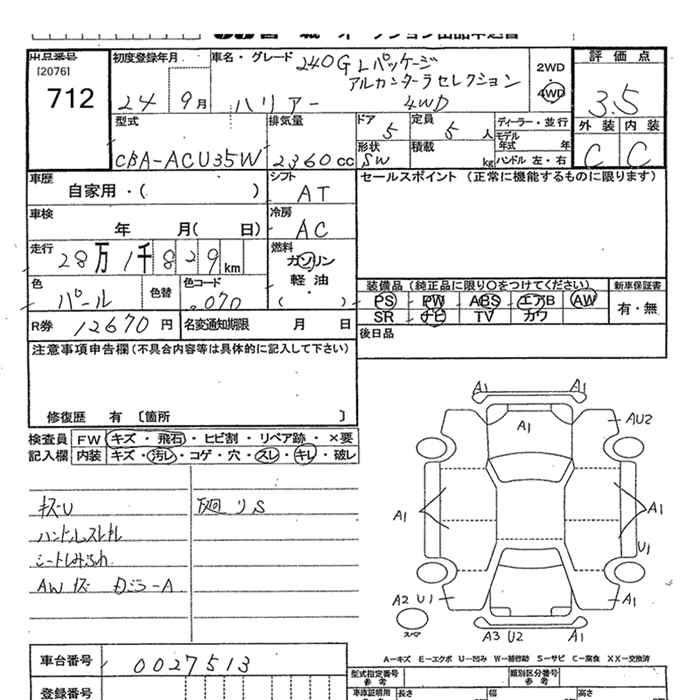 出品番号
[2076]
712
初度登録年月
24 9月
車名・グレード
240G Lパッケージ
アルカンターラセレクション
ハリアー 4WD
2WD
4WD
評価点
3.5
外装 内装
C C
型式
CBA-ACU35W
排気量
2360cc
ドア 5
定員 5人
形状 SW
積載 kg
ディーラー・並行
モデル年式 年
ハンドル 左・右
車歴
自家用・( )
シフト
AT
セールスポイント (正常に機能するものに限ります)
車検
年 月( 日)
冷房
AC
走行
28万1千829km
燃料
ガソリン
軽油
( )
色
パール
色替
色コード
070
装備品 (純正品に限り○をつけてください)
PS PW ABS エアB AW
SR ナビ TV カワ
新車保証書
有・無
R券 12670円
名変通知期限 月 日
後日品
注意事項申告欄(不具合内容等は具体的に記入して下さい)
修復歴 有 〔箇所 〕
検査員記入欄
FW キズ・飛石・ヒビ割・リペア跡・×要
内装 キズ・汚レ・コゲ・穴・スレ・キレ・破レ
キズU
廻りS
ハンドルスレキレ
シートしみ
AWキズ
A1 A1
A1 AU2
A1 A1
U1
A2 U1 A1
スペア
A3 U2 A1
A-キズ E-エクボ U-凹み W-補修跡 S-サビ C-腐食 XX-交換済
車台番号
0027513
登録番号
型式指定番号 参考
類別区分番号 参考
車庫証明用 参考
長さ 幅 高さ